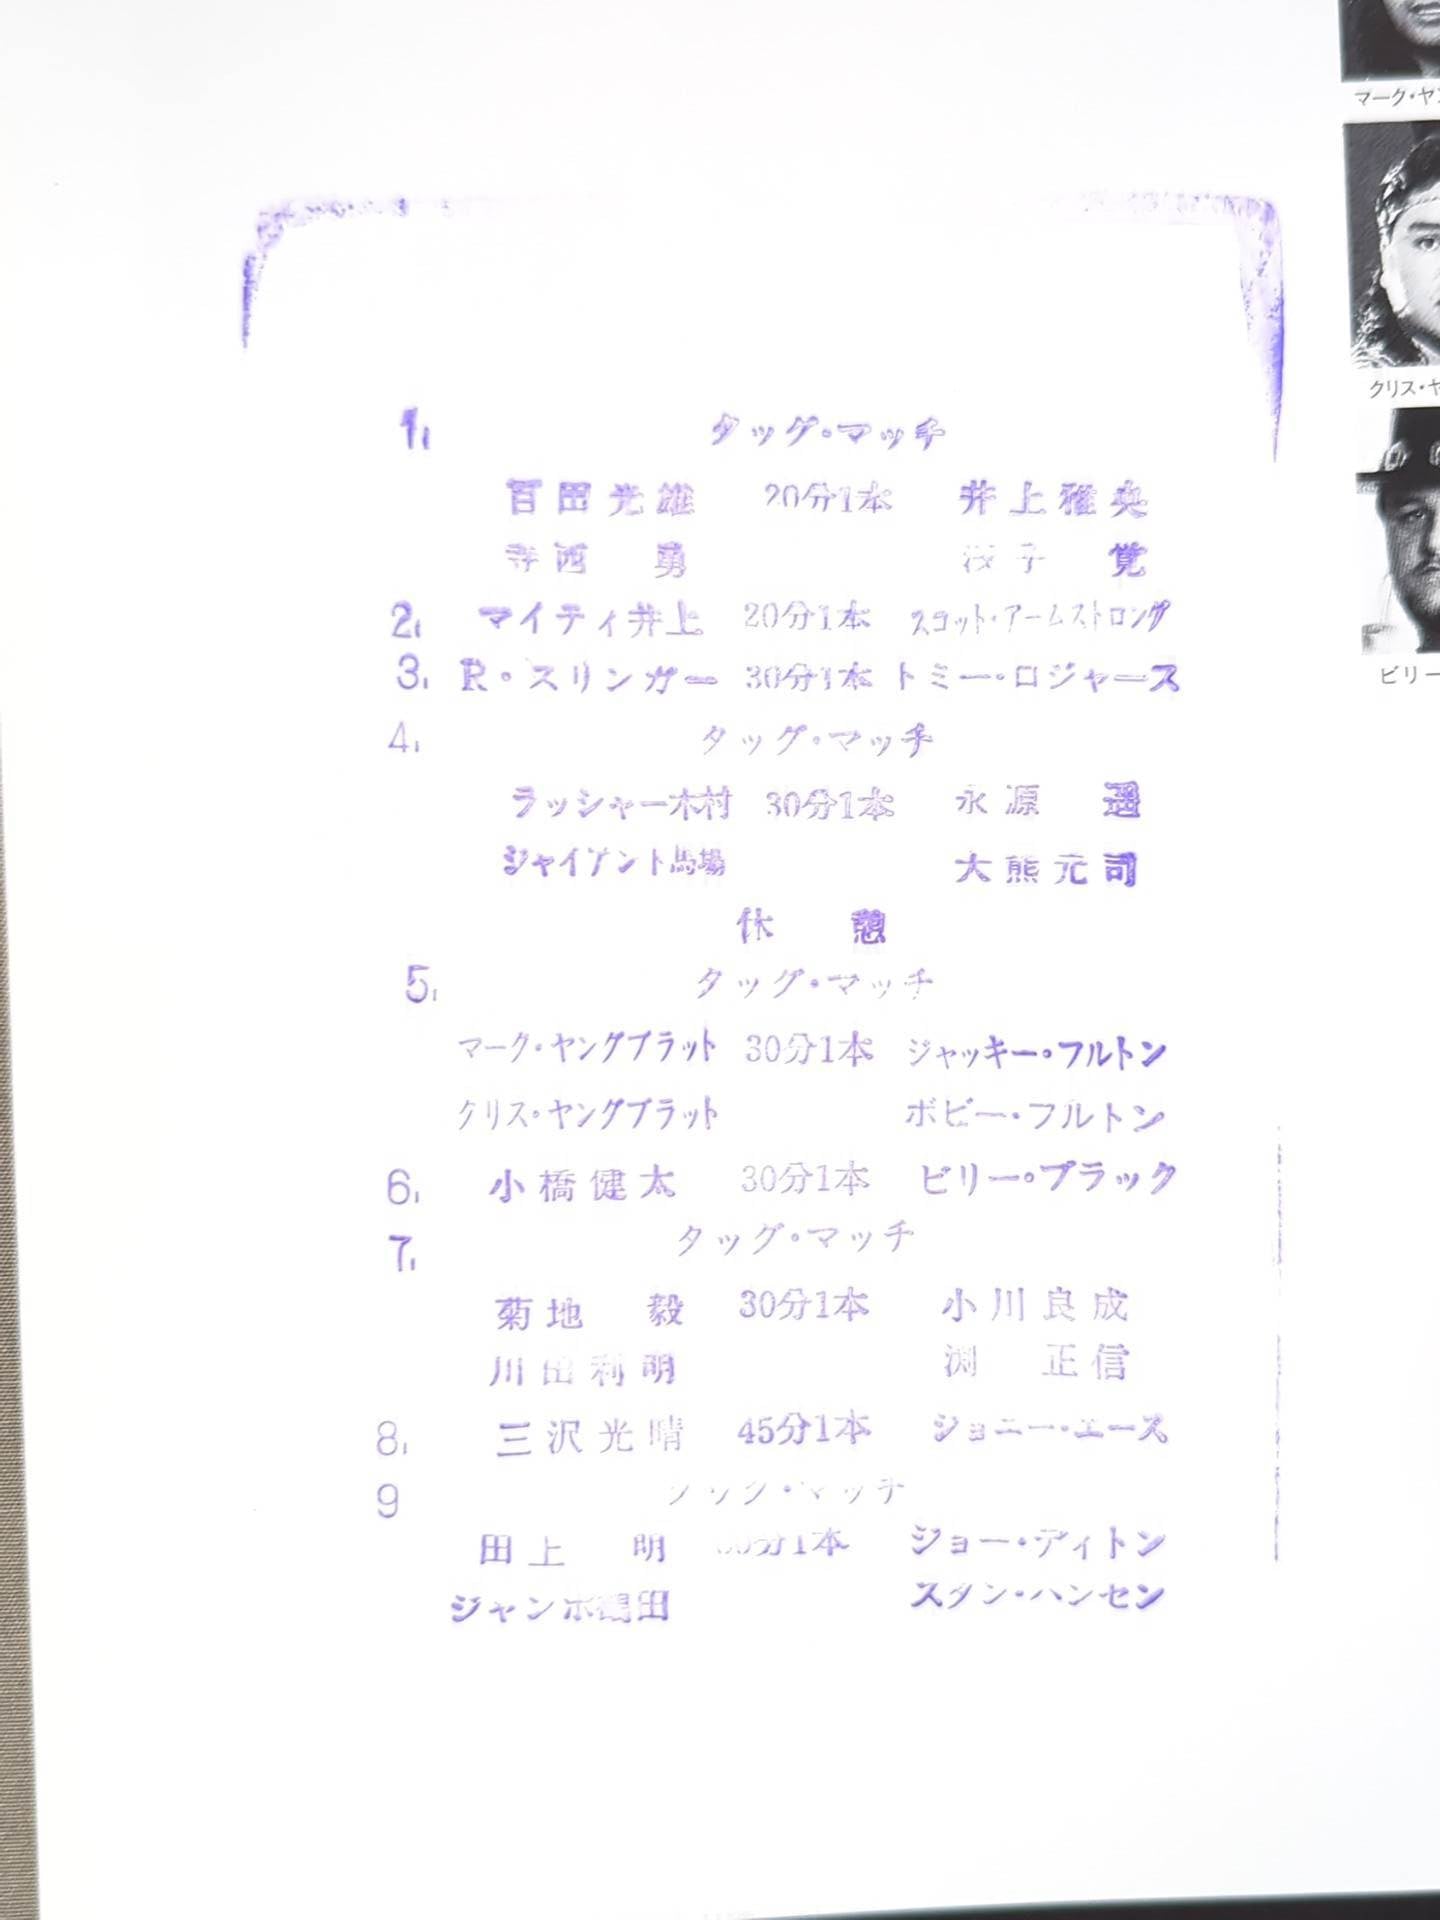 1. タッグ・マッチ
百田光雄 20分1本 井上雅央
寺西 勇 浅子 覚
2. マイティ井上 20分1本 スコット・アームストロング
3. R・スリンガー 30分1本 トミー・ロジャース
4. タッグ・マッチ
ラッシャー木村 30分1本 永源 遥
ジャイアント馬場 大熊元司
休 憩
5. タッグ・マッチ
マーク・ヤングブラット 30分1本 ジャッキー・フルトン
クリス・ヤングブラット ボビー・フルトン
6. 小橋健太 30分1本 ビリー・ブラック
7. タッグ・マッチ
菊地 毅 30分1本 小川良成
川田利明 渕 正信
8. 三沢光晴 45分1本 ジョニー・エース
9 タッグ・マッチ
田上 明 分1本 ジョー・ディトン
ジャンボ鶴田 スタン・ハンセン
マーク・ヤ
クリス・ヤ
ビリー